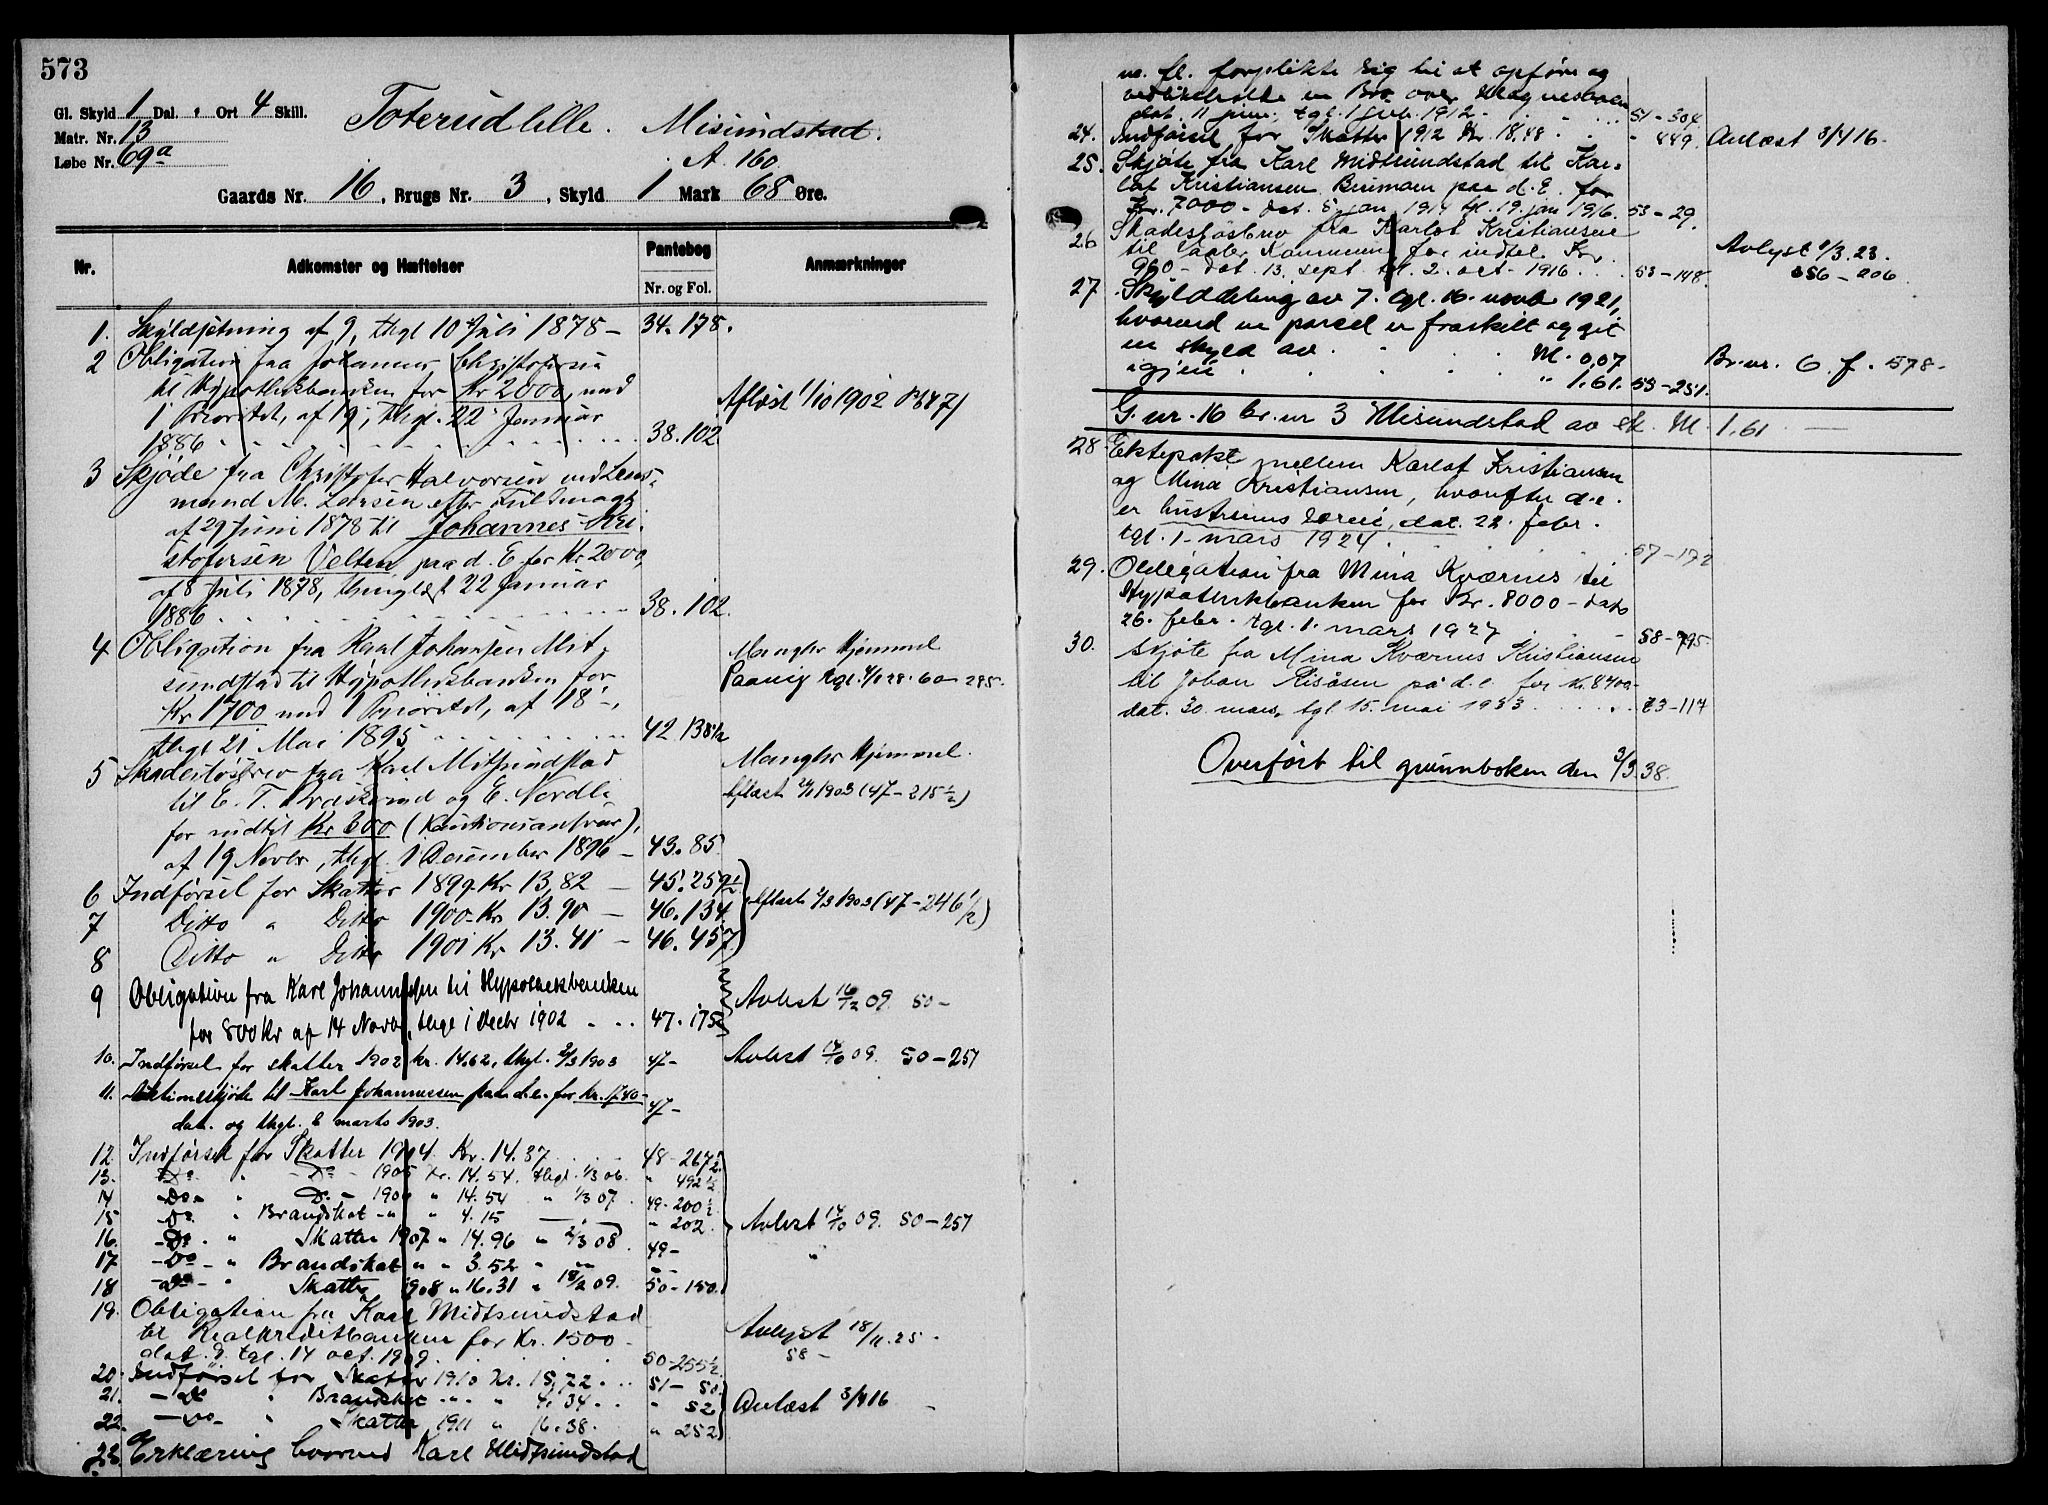 573
Gl. Skyld 1 Dal. " Ort 4 Skill.
Matr. Nr. 13
Løbe Nr. 69a
Toterud lille. Misundstad.
A. 160.
Gaards Nr. 16, Brugs Nr. 3, Skyld 1 Mark 68 Øre.
Nr. Adkomster og Hæftelser Pantebog Anmærkninger
Nr. og Fol.
1. Skyldsetning af 9, thgl 10 Juli 1878 – 34.178.
2 Obligation fra Johannes Christofersen
til Hypothekbanken for Kr 2000, med
1 Prioritet, af 19, thgl. 22 Januar
1886 38.102
Aflæst 1/10 1902
3 Skjøde fra Christofer Halvorsen ved Lens-
mand M. Larsen efter Fuldmagt
af 29 Juni 1878 til Johannes Kri-
stofersen Velten paa d. E. for Kr 2000,
af 8 Juli 1878, thinglæst 22 Januar
1886 38.102.
4 Obligation fra Karl Johansen Mit-
sundstad til Hypothekbanken for
Kr 1700 med 1 Prioritet, af 18
thgl 21 Mai 1895 42.138½
Mangler Hjemmel
60 – 285.
5 Skadesløsbrev fra Karl Mitsundstad
til E. T. Braskerud og E. Nordli
for indtil Kr 600 (Kautionsansvar),
af 19 Novbr, thgl. 1 December 1896 – 43.85
Mangler Hjemmel.
Aflæst 1903 (47 – 215½)
6 Indførsel for Skatter 1899 Kr 13,82 – 45.259½
7 Ditto " Ditto 1900 Kr 13.90 – 46.134
8 Ditto " Ditto 1901 Kr 13.41 – 46.457
Aflæst 2/3 1903 (47 – 246½)
9 Obligation fra Karl Johannesen til Hypothekbanken
for 800 Kr af 14 Novbr, thgl 1 Decbr 1902 47.175
Avlæst 16/2 09. 50 –
10. Indførsel for skatter 1902 kr. 14.62, thgl. 2/3 1903 47 –
Avlæst 14/10 09. 50 – 257
11. Auktionsskjøde til Karl Johannessen paa d. e. for kr. 1740 –
dat. og thgl. 2 marts 1903. 47 –
12. Indførsel for Skatter 1904 Kr. 14.37 48 – 267½
13. Do " Do – 1905 Kr. 14.54. thgl. 1/3 06. " 492½
14 – Do – " Do – 1906 " 14.54 " 1/3 07. 49 – 200½
15 Do " Brandskat – " " 4.15 " 202.
16. – Do. " Skatter 1907 " 14.96 " 2/3 08. 49 –
17 – Do – " Brandskat " " 3.52 " "
18 – Do – " Skatter 1908 " 16.31 " 18/2 09. 50 – 150.
Avlæst 14/10 09. 50 – 257
"
19. Obligation fra Karl Midtsundstad
til Realkreditbanken for Kr. 1500 –
dat. 9. tgl. 14 oct. 1909. 50 – 255½
Avlyst 18/11. 25.
58 –
20. Indførsel for Skatter 1910 Kr. 15,72. 51 – 50
21. – do " Brandskat – " – " 4,34 " 52
22. – Do – " Skatter 1911 " 16.38. " 252
Avlæst 3/4 16
23. Erklæring hvorved Karl Midtsundstad
m. fl. forplikte sig til at opføre og
vedlikeholde en Bro over Magnesaaen
dat. 11 juni, tgl. 1 febr. 1912. 51 – 304
24. Indførsel for Skatter 1912 Kr. 18,48 – 449.
Avlæst 3/4 16.
25. Skjøte fra Karl Midtsundstad til Kar-
lot Kristiansen Bismoen paa d. E. for
Kr. 7000 – dat. 5 jan 1914 tgl. 19. jan 1916. 53 – 29.
26 Skadesløsbrev fra Karlot Kristiansen
til Vaaler Kommune for indtil Kr.
900 – dat. 13. sept. tgl. 2. oct – 1916. 53 – 148.
Avlyst 1/3. 23.
27 Skylddeling av 7. tgl. 16. novb 1921,
hvorved en parsel er fraskilt og git
en skyld av M. 0,07
Br. nr. 6. f. 578 –
igjen " 1.61. 53 – 251.
G. nr. 16 br. nr 3 Misundstad av sk. M. 1,61 –
28 Ektepakt mellem Karlot Kristiansen
og Mina Kristiansen, hvorefter d. e.
er hustruens særeie, dat. 22. febr.
tgl. 1 – mars 1924. 57 – 172
29. Obligation fra Mina Kværnes til
Hypotekbanken for Kr. 8000 – dat.
26. febr. tgl. 1. mars 1927 58 – 795.
30. Skjøte fra Mina Kværnes Kristiansen
til Johan Risåsen på d. e. for kr. 8400 –
dat. 30. mars, tgl. 15. mai 1933 73 – 117
Overført til grunnboken den 3/3. 38.